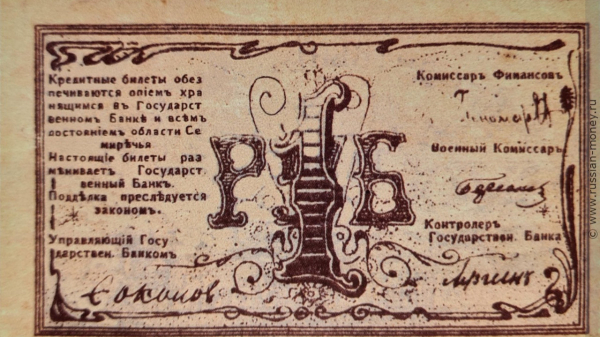 Кредитные билеты обез
печиваются опіемъ хра
нящимся въ Государст
венномъ Банкѣ и всѣмъ
достояніемъ области Се
мирѣчья.
Настоящіе билеты раз
мѣниваетъ Государст
венный Банкъ.
Поддѣлка преслѣдуется
закономъ.
Управляющій Госу
дарствен. Банкомъ
Соколов
1
РУБ
Комиссаръ Финансовъ
Военный Комиссаръ
Контролеръ
Государствен. Банка
© www.russian-money.ru